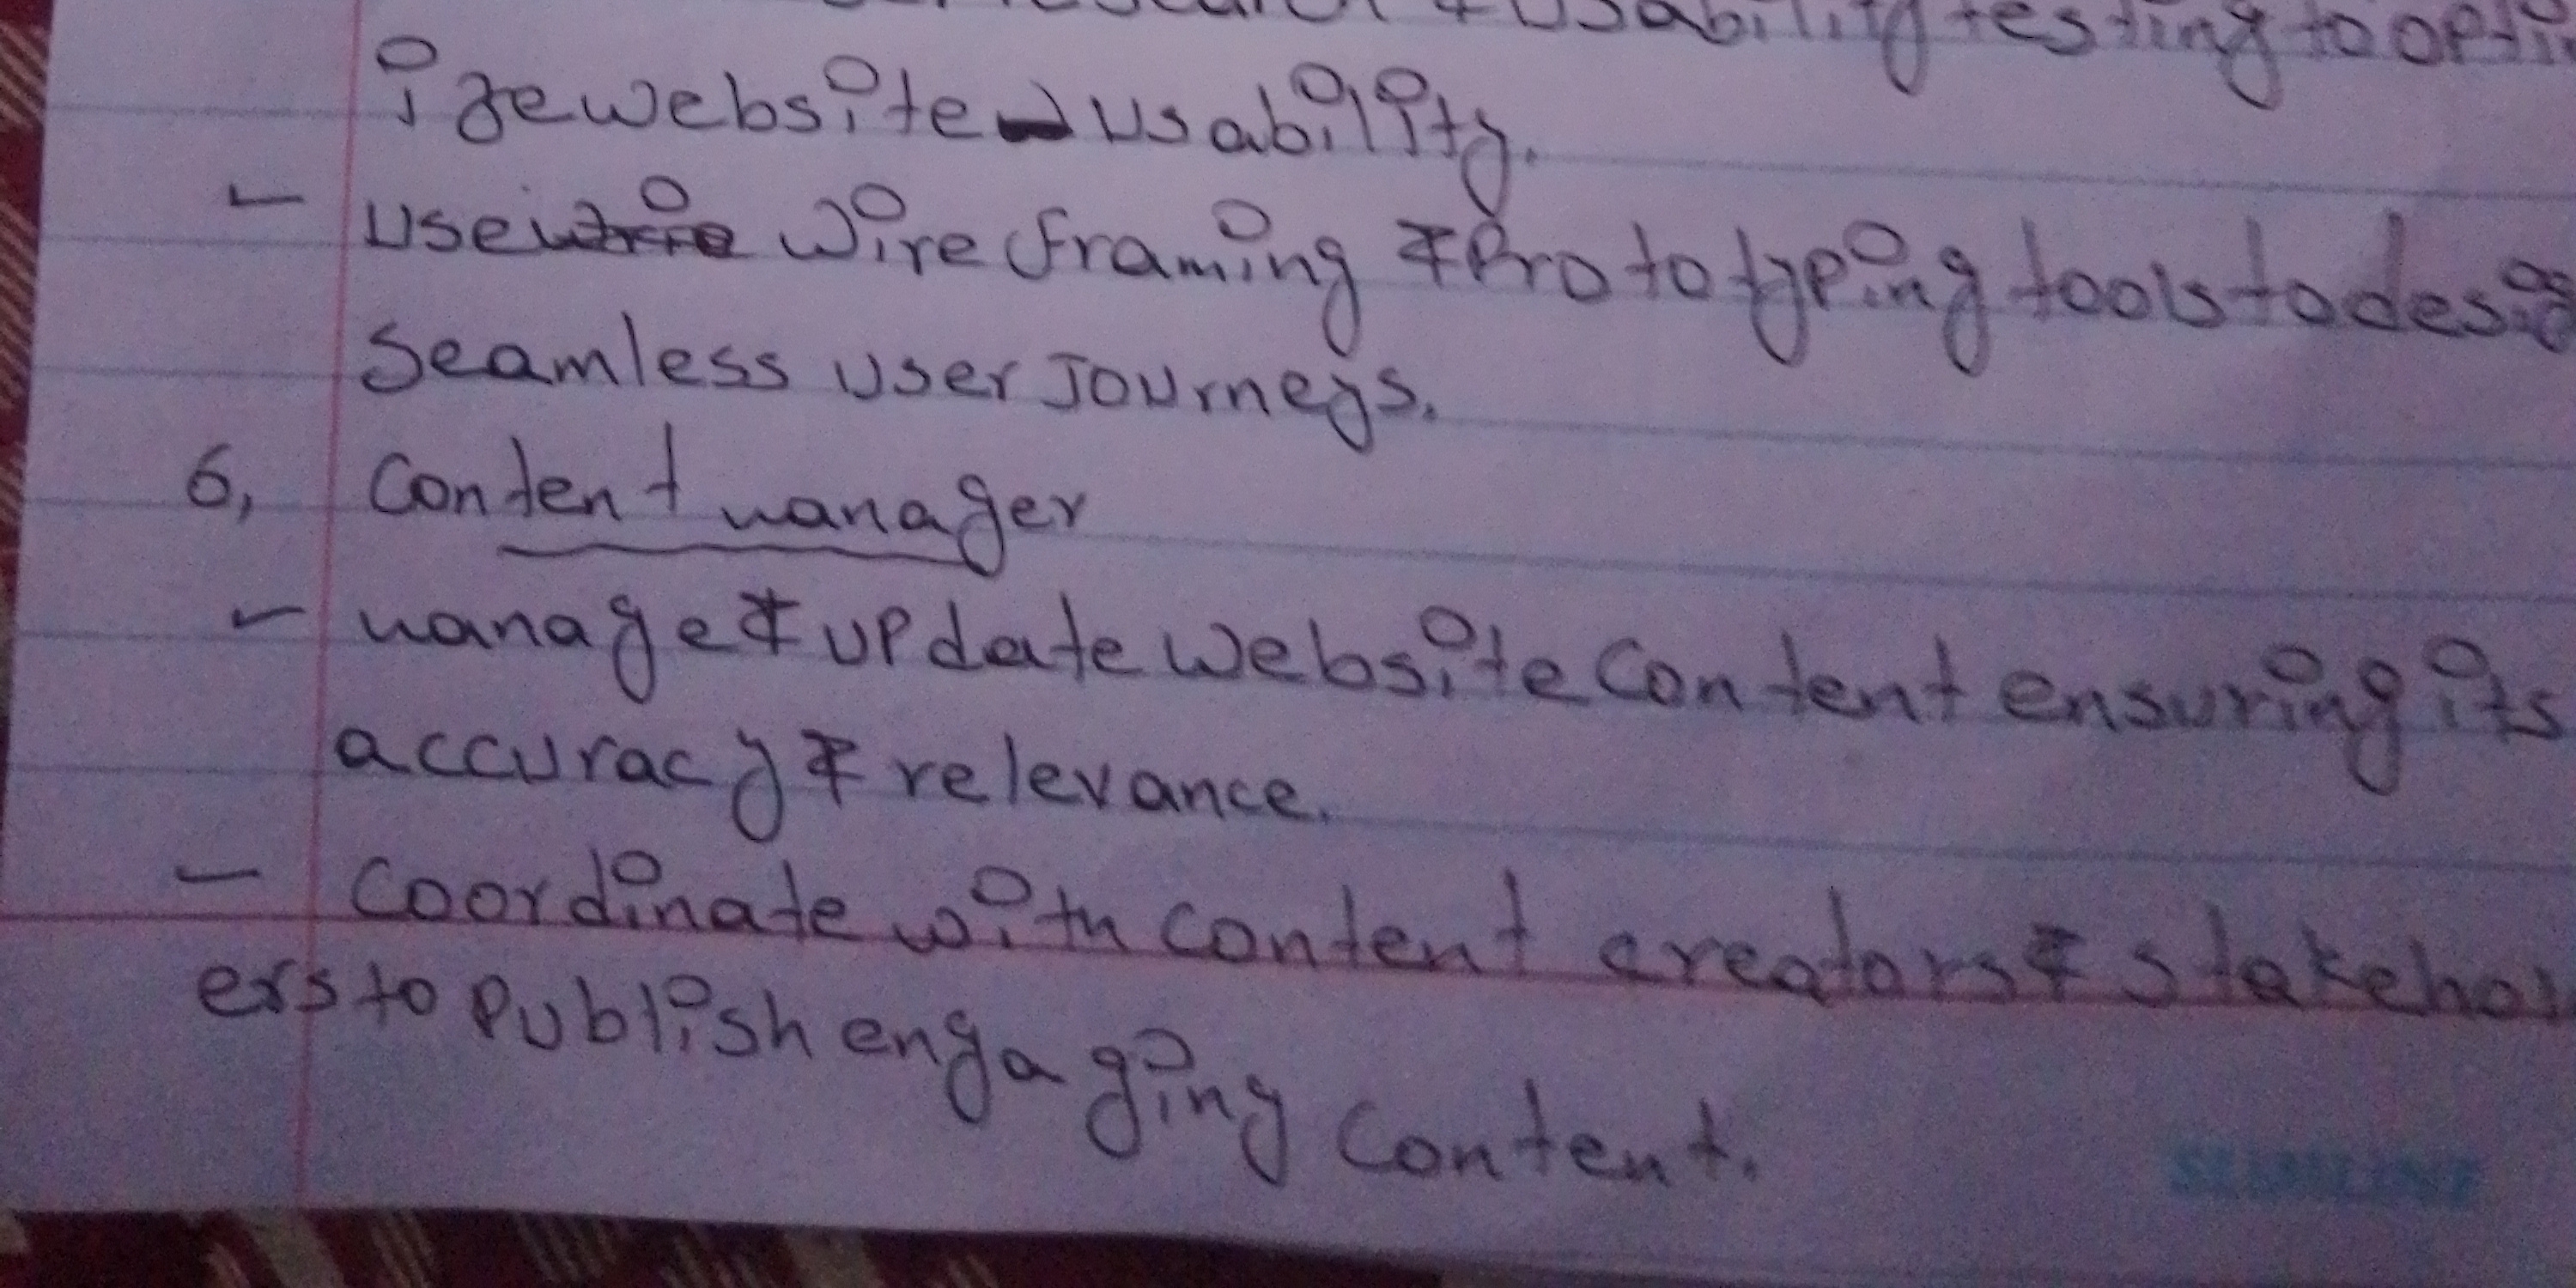 & Usability testing to optim
ize website usability.
- Use wire framing & Prototyping tools to desig
seamless user Journeys.
6, Content manager
- manage & update website content ensuring its
accuracy & relevance.
- Coordinate with content creators & stakehol
ers to publish engaging content.